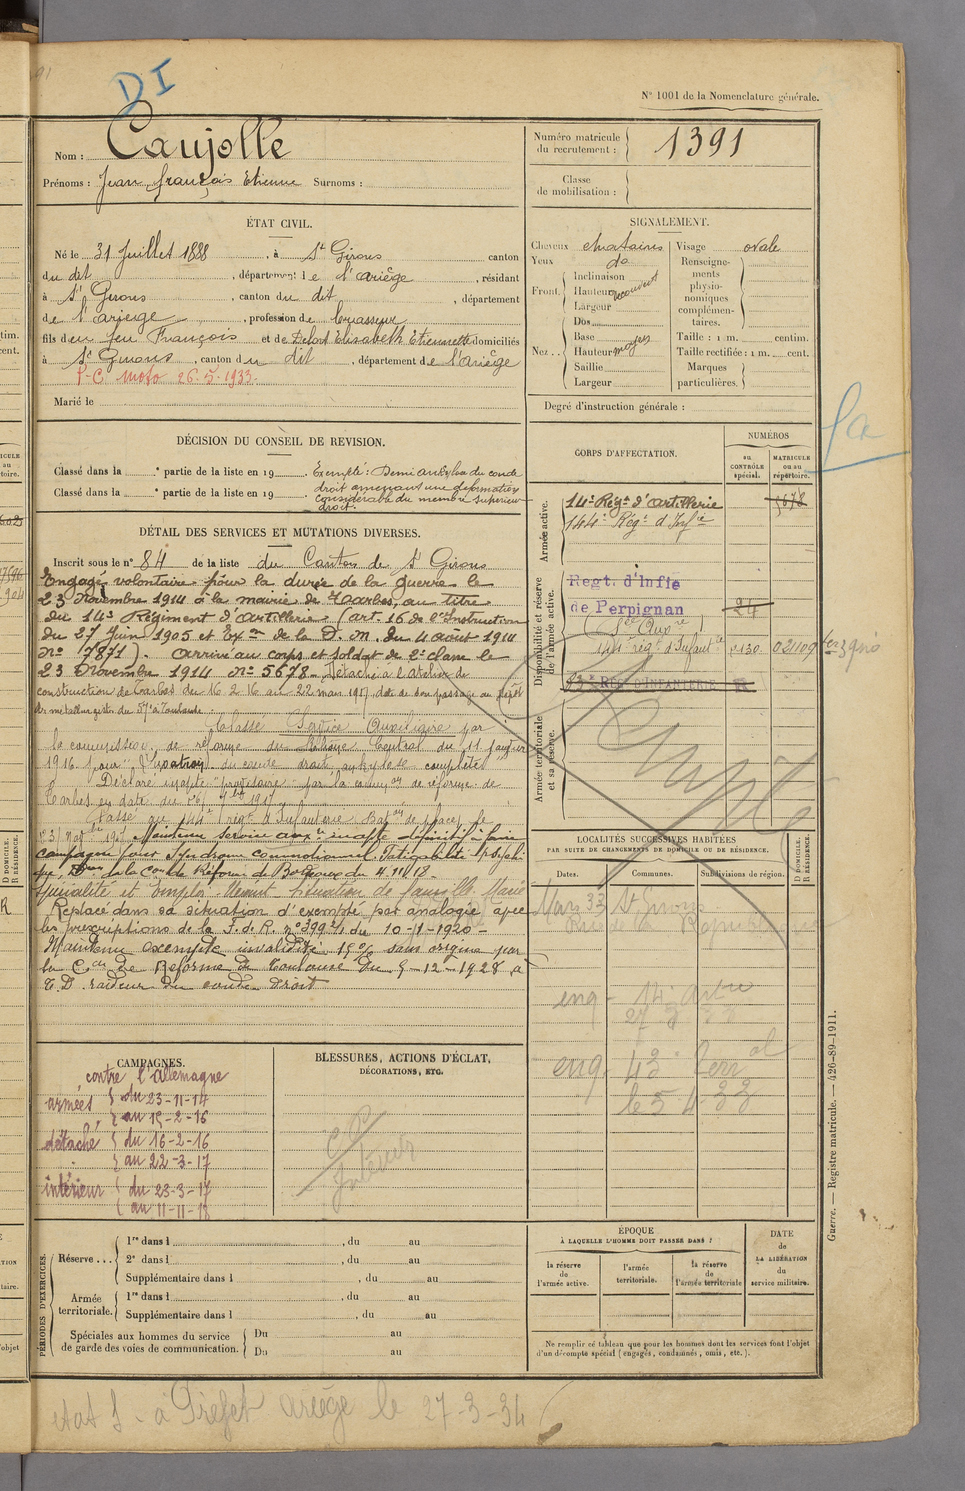 DI
N° 1001 de la Nomenclature générale.
Nom : Caujolle
Prénoms : Jean François Etienne Surnoms :
Numéro matricule du recrutement : 1391
Classe de mobilisation :
ÉTAT CIVIL.
Né le 31 Juillet 1888, à St Girons canton
du dit, département de l'ariège, résidant
à St Girons, canton du dit, département
de l'ariege, profession de brasseur
fils de feu François et de Delort Elisabeth Etiennette domiciliés
à St Girons, canton du dit, département de l'Ariège
P.C. moto 26.5.1933.
Marié le
SIGNALEMENT.
Cheveux chatains Visage ovale
Yeux do
Front. Inclinaison
Hauteur découvert
Largeur
Nez Dos
Base
Hauteur moyen
Saillie
Largeur
Renseignements physionomiques complémentaires.
Taille : 1 m. centim.
Taille rectifiée : 1 m. cent.
Marques particulières.
Degré d'instruction générale :
DÉCISION DU CONSEIL DE REVISION.
Classé dans la ° partie de la liste en 19 . Exempté : Demi ankylose du coude
Classé dans la ° partie de la liste en 19 . droit amenant une déformation
considérable du membre supérieur
droit.
DÉTAIL DES SERVICES ET MUTATIONS DIVERSES.
Inscrit sous le n° 84 de la liste du Canton de St Girons
Engagé volontaire pour la durée de la guerre le
23 Novembre 1914 à la mairie de Tarbes, au titre
du 14e Régiment d'artillerie (art. 16 de l'Instruction
du 27 Juin 1905 et Exon de la D. M. du 4 août 1914
no 17871). Arrivé au corps et soldat de 2e classe le
23 Novembre 1914 no 5678. Détaché à l'atelier de
construction de Tarbes du 16.2.16 au 22 mars 1917 date de son passage au Dépôt
des métallurgistes du 57e à Toulouse
Classé Service Auxiliaire par
la commission de réforme du
1916 pour du coude droit, ankylose complète
Déclaré inapte provisoire par la comm on de réforme de
Tarbes en date du 1917
Passé au 144e régt d'Infanterie Bat on de place, le
Maintenu service auxre inapte définitif à faire
campagne pour Syndrome commotionnel. Fatigabilité
par la Con de Réforme de Bordeaux du 4.III.18.
Spécialité et emploi : Néant. Situation de famille Marié
Replacé dans sa situation d'exempté par analogie avec
les prescriptions de la du 10-1-1920
Maintenu exempté invalidité 15% sans origine par
la Con de Réforme de Toulouse du 5-12-1928 à
T.D. raideur du coude droit
CORPS D'AFFECTATION.
NUMÉROS
au CONTRÔLE spécial.
MATRICULE ou au répertoire.
Armée active.
14e Régt d'artillerie 5678
144e Régt d'Infie
Disponibilité et réserve de l'armée active.
Regt. d'Infie
de Perpignan 24
144e régt d'Infantie 02109
83e REGT D'INFANTERIE
Armée territoriale et sa réserve.
Exempté
LOCALITÉS SUCCESSIVES HABITÉES
PAR SUITE DE CHANGEMENTS DE DOMICILE OU DE RÉSIDENCE.
Dates. Communes. Subdivisions de région. D DOMICILE. R RÉSIDENCE.
Mars 33 St Girons
Rue de la République
eng - 14e Artrie
eng. 43e Terral
le 5 4 33
CAMPAGNES.
contre l'Allemagne
armées du 23-11-14
au 15-2-16
détaché du 16-2-16
au 22-3-17
intérieur du 23-3-17
au 11-11-18
BLESSURES, ACTIONS D'ÉCLAT,
DÉCORATIONS, ETC.
Intérieur
PÉRIODES D'EXERCICES.
Réserve ... 1re dans l , du au
2e dans l , du au
Supplémentaire dans l , du au
Armée territoriale. 1re dans l , du au
Supplémentaire dans l , du au
Spéciales aux hommes du service Du au
de garde des voies de communication. Du au
ÉPOQUE
À LAQUELLE L'HOMME DOIT PASSER DANS :
la réserve de l'armée active.
l'armée territoriale.
la réserve de l'armée territoriale
DATE de LA LIBÉRATION du service militaire.
Ne remplir ce tableau que pour les hommes dont les services font l'objet
d'un décompte spécial (engagés, condamnés, omis, etc.).
Guerre. — Registre matricule. — 426-89-1911.
état à Préfet ariège le 27-3-34